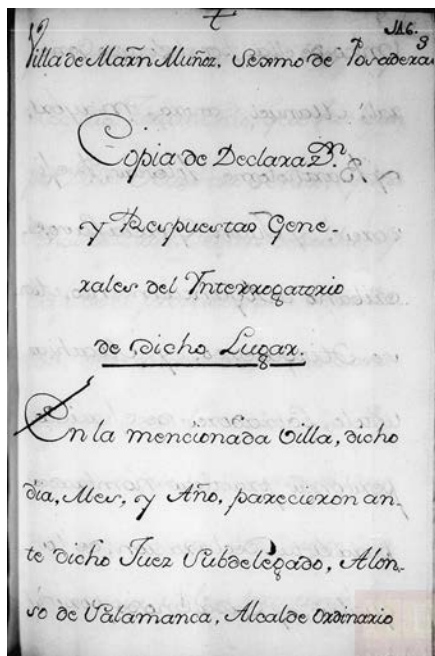 116.
Villa de Marñ Muñoz. Sexmo de Posadexas
Copia de Declaraz.ⁿ
y Respuestas Gene-
xales del Ynterrogatorio
de dicho Lugax.
En la mencionada Villa, dicho
dia, Mes, y Año, parecieron an-
te dicho Juez Subdelegado, Alon-
so de Salamanca, Alcalde Ordinario